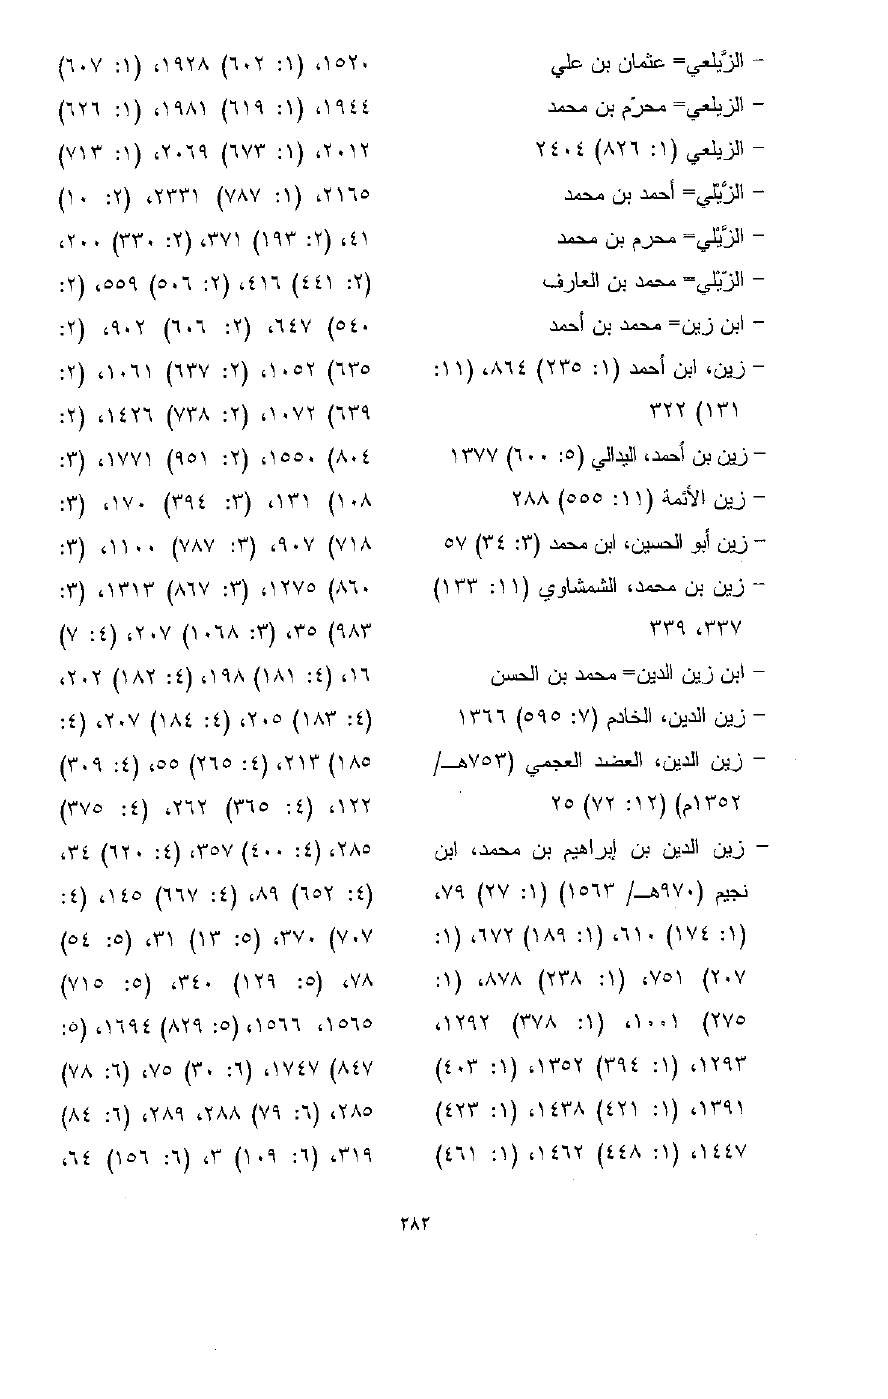 - الزَّيلعي= عثمان بن علي
- الزيلعي= محرّم بن محمد
- الزيلعي (١: ٨٢٦) ٢٤٠٤
- الزِّيَّلي= أحمد بن محمد
- الزِّيَّلي= محرم بن محمد
- الزيّلي= محمد بن العارف
- ابن زين= محمد بن أحمد
- زين، ابن أحمد (١: ٢٣٥) ٨٦٤، (١١:
١٣١) ٣٢٢
- زين بن أحمد، اليدالي (٥: ٦٠٠) ١٣٧٧
- زين الأئمة (١١: ٥٥٥) ٢٨٨
- زين أبو الحسين، ابن محمد (٣: ٣٤) ٥٧
- زين بن محمد، الشمشاوي (١١: ١٣٣)
٣٣٧، ٣٣٩
- ابن زين الدين= محمد بن الحسن
- زين الدين، الخادم (٧: ٥٩٥) ١٣٦٦
- زين الدين، العضد العجمي (٧٥٣هـ/
١٣٥٢م) (١٢: ٧٢) ٢٥
- زين الدين بن إبراهيم بن محمد، ابن
نجيم (٩٧٠هـ/ ١٥٦٣) (١: ٢٧) ٧٩،
(١: ١٧٤) ٦١٠، (١: ١٨٩) ٦٧٢، (١:
٢٠٧) ٧٥١، (١: ٢٣٨) ٨٧٨، (١:
٢٧٥) ١٠٠١، (١: ٣٧٨) ١٢٩٢،
١٢٩٣، (١: ٣٩٤) ١٣٥٢، (١: ٤٠٣)
١٣٩١، (١: ٤٢١) ١٤٣٨، (١: ٤٢٣)
١٤٤٧، (١: ٤٤٨) ١٤٦٢، (١: ٤٦١)
١٥٢٠، (١: ٦٠٢) ١٩٢٨، (١: ٦٠٧)
١٩٤٤، (١: ٦١٩) ١٩٨١، (١: ٦٢٦)
٢٠١٢، (١: ٦٧٣) ٢٠٦٩، (١: ٧١٣)
٢١٦٥، (١: ٧٨٧) ٢٣٣١، (٢: ١٠)
٤١، (٢: ١٩٣) ٣٧١، (٢: ٣٣٠) ٢٠٠،
(٢: ٤٤١) ٤١٦، (٢: ٥٠٦) ٥٥٩، (٢:
٥٤٠) ٦٤٧، (٢: ٦٠٦) ٩٠٢، (٢:
٦٣٥) ١٠٥٢، (٢: ٦٣٧) ١٠٦١، (٢:
٦٣٩) ١٠٧٢، (٢: ٧٣٨) ١٤٢٦، (٢:
٨٠٤) ١٥٥٠، (٢: ٩٥١) ١٧٧١، (٣:
١٠٨) ١٣١، (٣: ٣٩٤) ١٧٠، (٣:
٧١٨) ٩٠٧، (٣: ٧٨٧) ١١٠٠، (٣:
٨٦٠) ١٢٧٥، (٣: ٨٦٧) ١٣١٣، (٣:
٩٨٣) ٣٥، (٣: ١٠٦٨) ٢٠٧، (٤: ٧)
١٦، (٤: ١٨١) ١٩٨، (٤: ١٨٢) ٢٠٢،
(٤: ١٨٣) ٢٠٥، (٤: ١٨٤) ٢٠٧، (٤:
١٨٥) ٢١٣، (٤: ٢٦٥) ٥٥، (٤: ٣٠٩)
١٢٢، (٤: ٣٦٥) ٢٦٢، (٤: ٣٧٥)
٢٨٥، (٤: ٤٠٠) ٣٥٧، (٤: ٦٢٠) ٣٤،
(٤: ٦٥٢) ٨٩، (٤: ٦٦٧) ١٤٥، (٤:
٧٠٧) ٣٧٠، (٥: ١٣) ٣١، (٥: ٥٤)
٧٨، (٥: ١٢٩) ٣٤٠، (٥: ٧١٥)
١٥٦٥، ١٥٦٦، (٥: ٨٢٩) ١٦٩٤، (٥:
٨٤٧) ١٧٤٧، (٦: ٣٠) ٧٥، (٦: ٧٨)
٢٨٥، (٦: ٧٩) ٢٨٨، ٢٨٩، (٦: ٨٤)
٣١٩، (٦: ١٠٩) ٣، (٦: ١٥٦) ٦٤،
٢٨٢